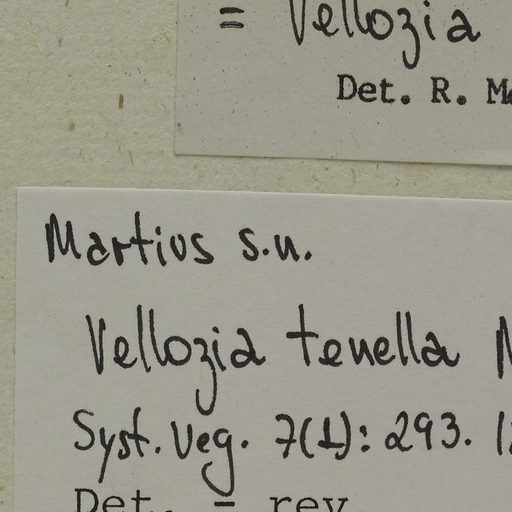 = Vellozia
Det. R.
Martius s.n.
Vellozia tenella
Syst. Veg. 7(1): 293.
Det. = rev.